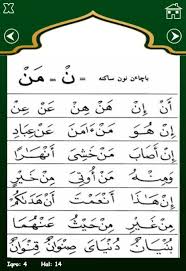 باچاءن نون ساكنه = نْ = مَنْ
أَنْ إِنْ هَنْ هِنْ عَنْ عِنْ
إِنْ هُوَ مَنْ ءَامَنَ عَنْ عِبَادِ
إِنْ أَصَابَ مَنْ خَشِيَ أَنْهَٰرًا
وَمِنْهُ مَنْ أُوتِيَ مِنْ خَيْرٍ
إِنْ هَٰذَا أَنْعَمْتَ أَنْ هَدَىٰكُمْ
مِنْ غَيْرِ مِنْ حَيْثُ عَنْهُمَا
بُنْيَانٌ دُنْيَا صِنْوَانٌ قِنْوَانٌ
Iqro: 4 Hal: 14